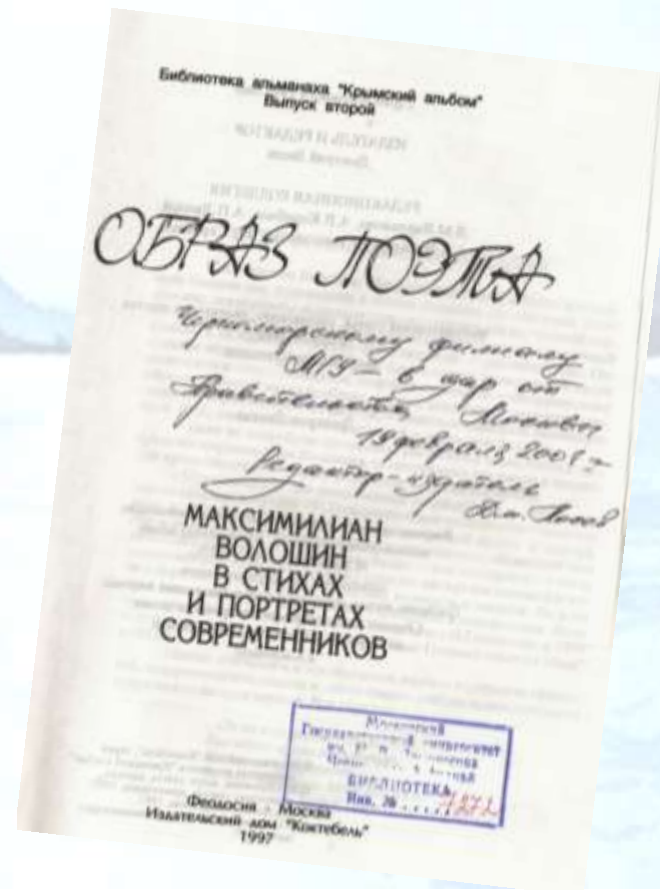 Библиотека альманаха "Крымский альбом"
Выпуск второй
ОБРАЗ ПОЭТА
Черноморскому филиалу
МГУ – в дар от
Правительства Москвы
19 февраля 2001 г.
Редактор-издатель
Дм. Лосев
МАКСИМИЛИАН
ВОЛОШИН
В СТИХАХ
И ПОРТРЕТАХ
СОВРЕМЕННИКОВ
Московский
Государственный университет
БИБЛИОТЕКА
Инв. №
Феодосия - Москва
Издательский дом "Коктебель"
1997